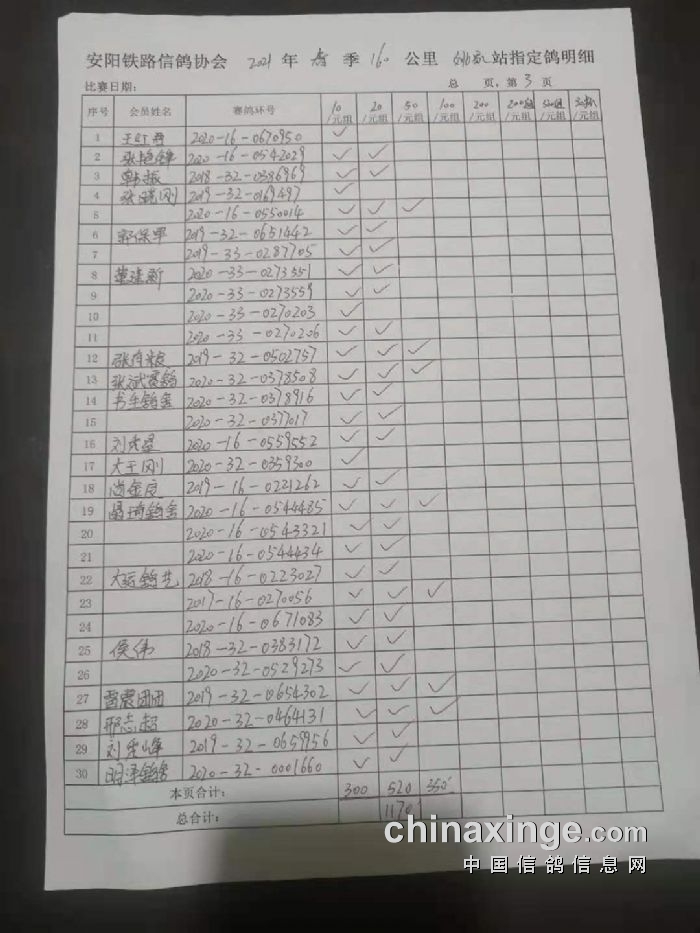 安阳铁路信鸽协会 2021 年 春 季 160 公里 站指定鸽明细
比赛日期: 总 页,第 3 页
序号 会员姓名 赛鸽环号 10/元组 20/元组 50/元组 100/元组 200/元组 /元组 /元组 /元组
1 2020-16-0670950 ✓
2 张艳锋 2020-16-0542029 ✓ ✓
3 韩振 2018-32-0386969 ✓ ✓
4 张晓刚 2019-32-0169497 ✓
5 2020-16-0550014 ✓ ✓ ✓
6 郭保军 2019-32-0651442 ✓ ✓
7 2019-33-0287705 ✓ ✓
8 董建新 2020-33-0273551 ✓ ✓
9 2020-33-0273559 ✓ ✓
10 2020-33-0270203 ✓
11 2020-33-0270206 ✓ ✓
12 2019-32-0502757 ✓ ✓ ✓
13 张斌赛鸽 2020-32-0378508 ✓ ✓ ✓
14 书生鸽舍 2020-32-0378916 ✓ ✓
15 2020-32-0377017 ✓ ✓
16 2020-16-0559552 ✓ ✓
17 大王刚 2020-32-0359300 ✓
18 尚金良 2019-16-0221262 ✓ ✓
19 鸽舍 2020-16-0544485 ✓ ✓ ✓
20 2020-16-0543321 ✓ ✓
21 2020-16-0544434 ✓ ✓
22 2018-16-0223027 ✓ ✓
23 2017-16-0270056 ✓ ✓ ✓
24 2020-16-0671083 ✓ ✓
25 侯伟 2018-32-0383172 ✓ ✓
26 2020-32-0529273 ✓ ✓
27 雷震团团 2019-32-0654302 ✓ ✓ ✓
28 邢志超 2020-32-0464131 ✓ ✓ ✓
29 2019-32-0659956 ✓ ✓
30 明泽鸽舍 2020-32-0001660 ✓ ✓
本页合计: 300 520 350
总合计: 1170
chinaxinge.com
中国信鸽信息网